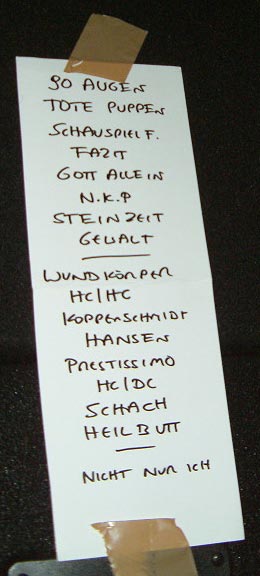 90 AUGEN
TOTE PUPPEN
SCHAUSPIEL F.
FAZIT
GOTT ALLEIN
N.K.P
STEINZEIT
GEWALT
WUNDKÖRPER
HC/HC
KOPPERSCHMIDT
HANSEN
PRESTISSIMO
HC/DC
SCHACH
HEILBUTT
NICHT NUR ICH